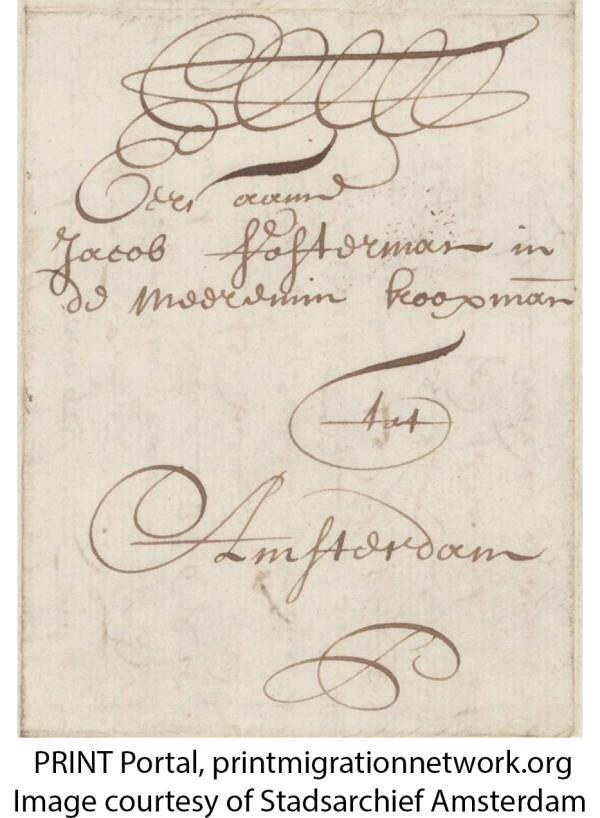 Eers aame
Jacob Fosterman in
de Meeremin koopman
tot
Amsterdam
PRINT Portal, printmigrationnetwork.org
Image courtesy of Stadsarchief Amsterdam